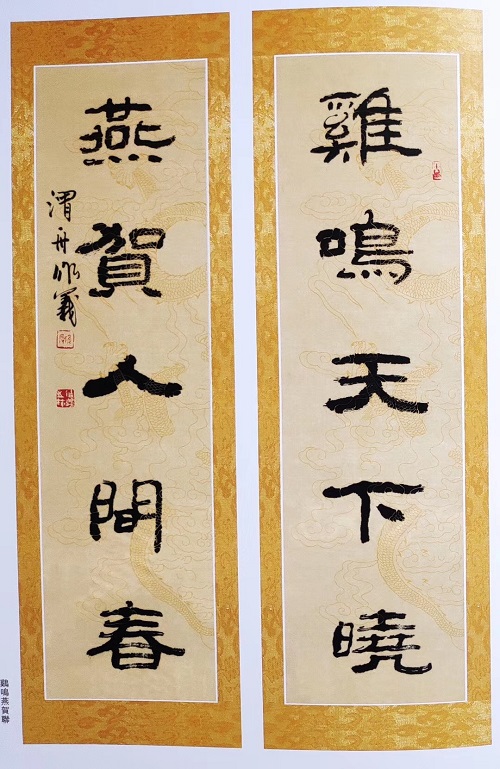 雞鳴天下曉
燕賀人間春
渭舟作義
鷄鳴燕賀聯